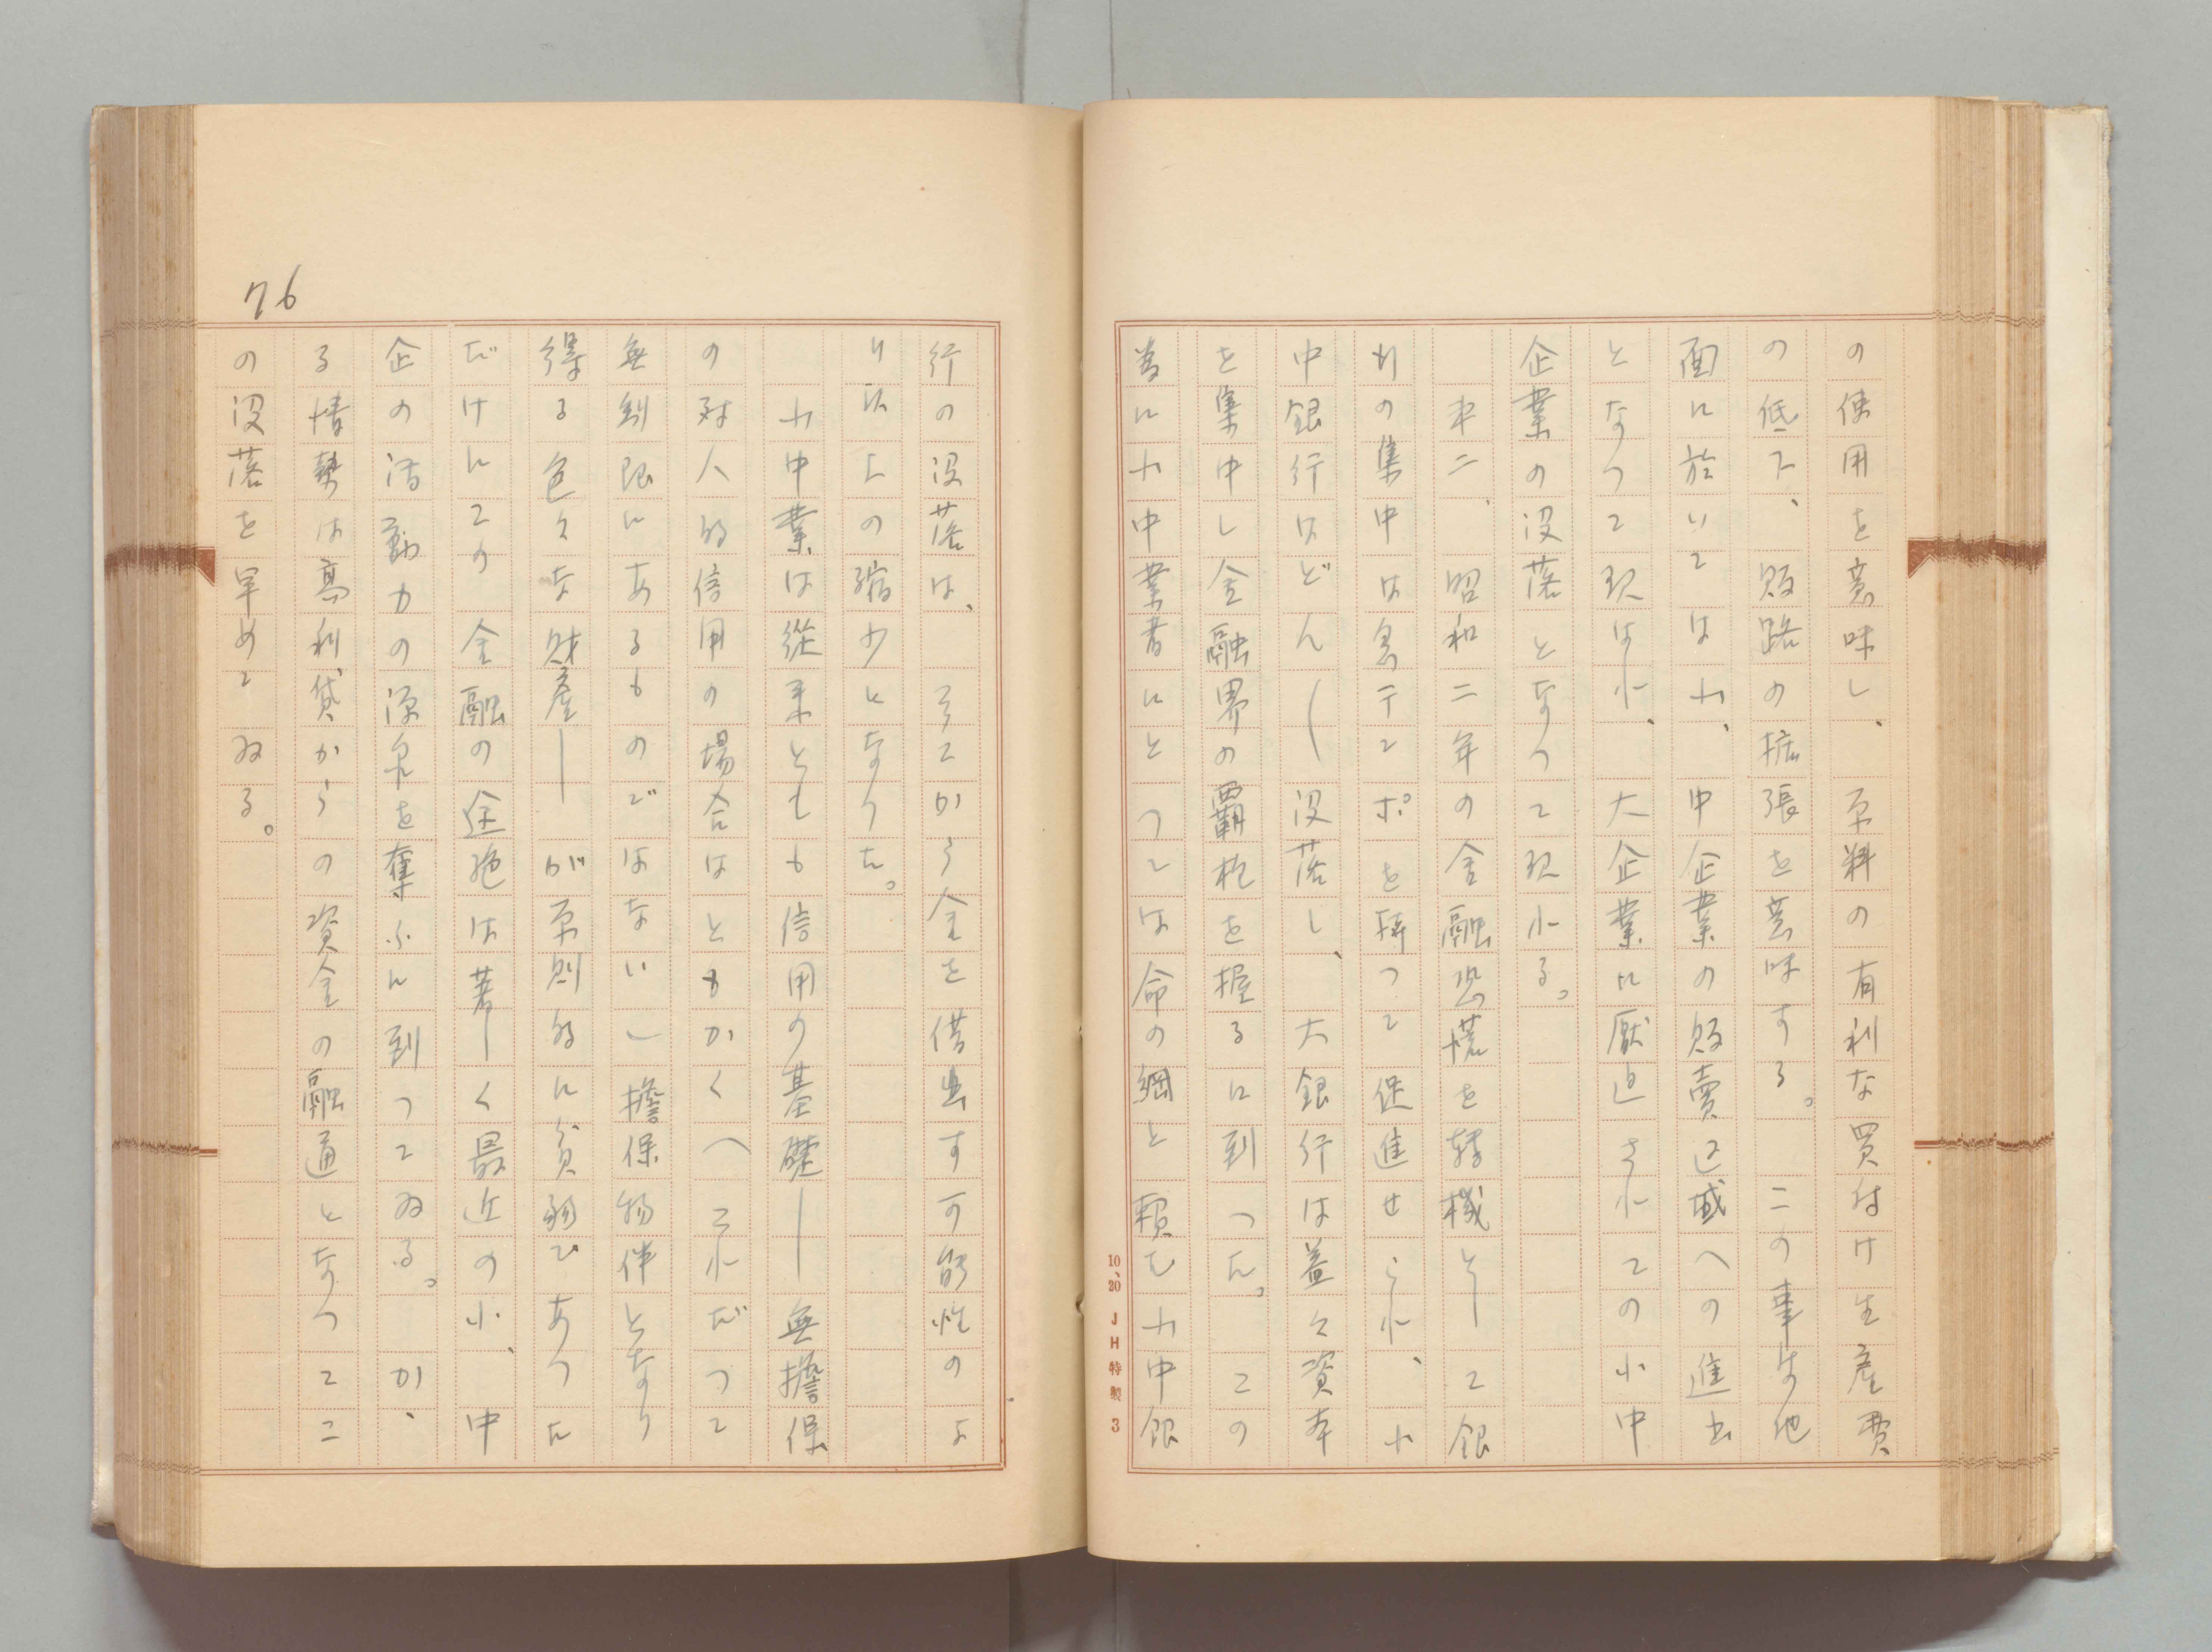 の使用を意味し、原料の有利な買付け生産費
の低下、販路の拡張を意味する。この事は他
面に於いては小、中企業の販売区域への進出
となつて現はれ、大企業に圧迫されての小中
企業の没落となつて現れる。
第二、昭和二年の金融恐慌を転機として銀
行の集中は急テンポを持つて促進せられ、小
中銀行はどんどん没落し、大銀行は益々資本
を集中し金融界の覇権を握るに到つた。この
為に小中業者にとつては命の綱と頼む小中銀
10、20 JH特製 3
76
行の没落は、そこから金を借出す可能性のよ
り以上の縮少となつた。
小中業は従来とても信用の基礎――無担保
の対人的信用の場合はともかく(これだつて
無制限にあるものではない)担保物件となり
得る色々な財産――が原則的に貧弱であつた
だけにこの金融の途絶は著しく最近の小、中
企の活動力の源泉を奪ふに到つてゐる。か、
る情勢は高利貸からの資金の融通となつてこ
の没落を早めてゐる。